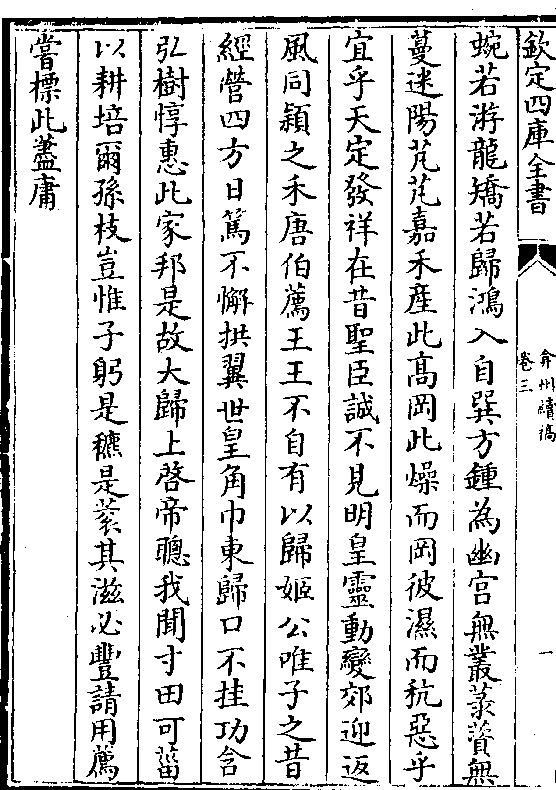 欽定四庫全書
弇州續稿
卷三
一
蜿若游龍矯若歸鴻入自巽方鍾為幽宫無叢菉薋無
蔓迷陽芃芃嘉禾産此髙岡此燥而岡彼濕而秔惡乎
宜乎天定發祥在昔聖臣誠不見明皇靈動變郊迎返
風同頴之禾唐伯薦王王不自有以歸姬公唯子之昔
經營四方日篤不懈拱翼世皇角巾東歸口不挂功含
弘樹惇惠此家邦是故大歸上啓帝聰我聞寸田可菑
以耕培爾孫枝豈惟子躬是穮是蓘其滋必豐請用薦
嘗標此藎庸